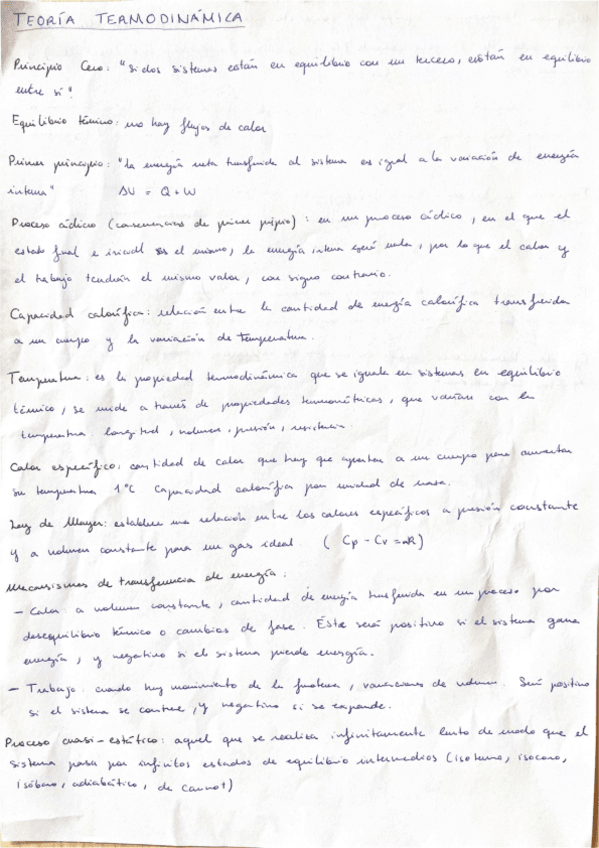 TEORÍA TERMODINÁMICA
Principio Cero: "si dos sistemas están en equilibrio con un tercero, están en equilibrio
entre sí".
Equilibrio térmico: no hay flujos de calor
Primer principio: "la energía neta transferida al sistema es igual a la variación de energía
interna" ΔU = Q + W
Proceso cíclico (consecuencias de primer ppipio): en un proceso cíclico, en el que el
estado final e inicial es el mismo, la energía interna será nula, por lo que el calor y
el trabajo tendrán el mismo valor, con signo contrario.
Capacidad calorífica: relación entre la cantidad de energía calorífica transferida
a un cuerpo y la variación de temperatura.
Temperatura: es la propiedad termodinámica que se iguala en sistemas en equilibrio
térmico, se mide a través de propiedades termométricas, que varían con la
temperatura longitud, volumen, presión, resistencia.
Calor específico: cantidad de calor que hay que aportar a un cuerpo para aumentar
su temperatura 1°C Capacidad calorífica por unidad de masa.
Ley de Mayer: establece una relación entre los calores específicos a presión constante
y a volumen constante para un gas ideal. (Cp - Cv = nR)
Mecanismos de transferencia de energía:
- Calor a volumen constante, cantidad de energía trasferida en un proceso por
desequilibrio térmico o cambios de fase. Éste será positivo si el sistema gana
energía, y negativo si el sistema pierde energía.
- Trabajo cuando hay movimiento de la frontera, variaciones de volumen. Será positivo
si el sistema se contrae, y negativo si se expande.
Proceso cuasi-estático: aquel que se realiza infinitamente lento de modo que el
sistema pasa por infinitos estados de equilibrio intermedios (isotermo, isocoro,
isóbaro, adiabático, de carnot)